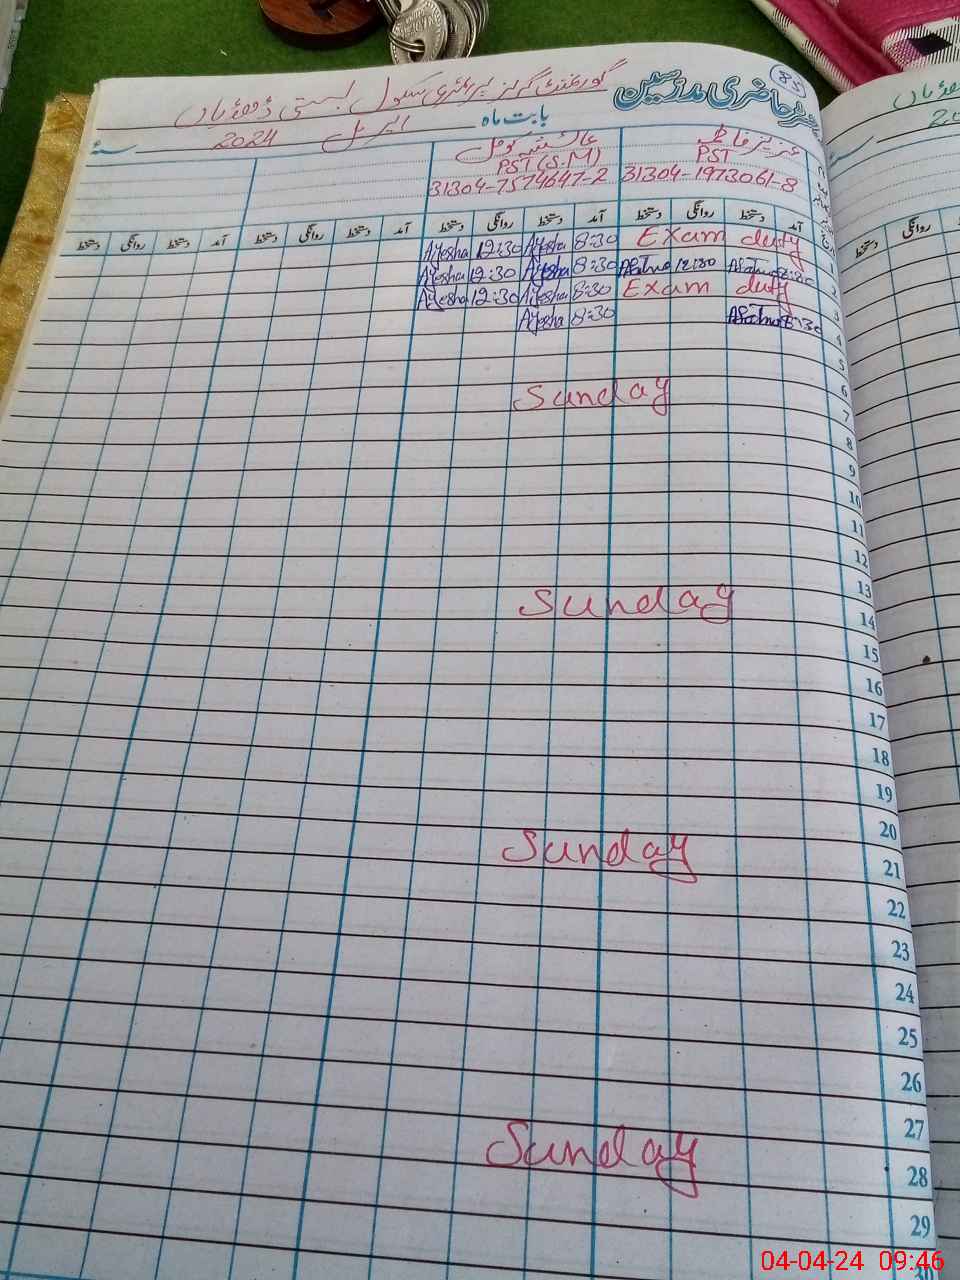 83
رجسٹر حاضری مدرسین
گورنمنٹ گرلز پرائمری سکول بستی ڈھڈیاں
بابت ماہ اپریل 2024
عزیز فاطمہ
PST
31304-1973061-8
عائشہ کومل
PST (S.M)
31304-7574647-2
آمد دستخط روانگی دستخط آمد دستخط روانگی دستخط آمد دستخط روانگی دستخط آمد دستخط روانگی دستخط
1 Exam duty 8:30 Ayesha 12:30 Ayesha
2 8:30 12:30 8:30 Ayesha 12:30 Ayesha
3 Exam duty 8:30 Ayesha 12:30 Ayesha
4 8:30 8:30 Ayesha
5
6
7 Sunday
8
9
10
11
12
13
14 Sunday
15
16
17
18
19
20
21 Sunday
22
23
24
25
26
27
28 Sunday
29
30
04-04-24 09:46